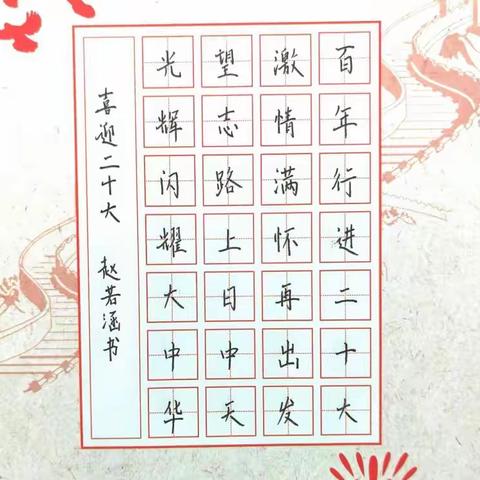 百年行进二十大
激情满怀再出发
望志路上日中天
光辉闪耀大中华
喜迎二十大 赵若涵书